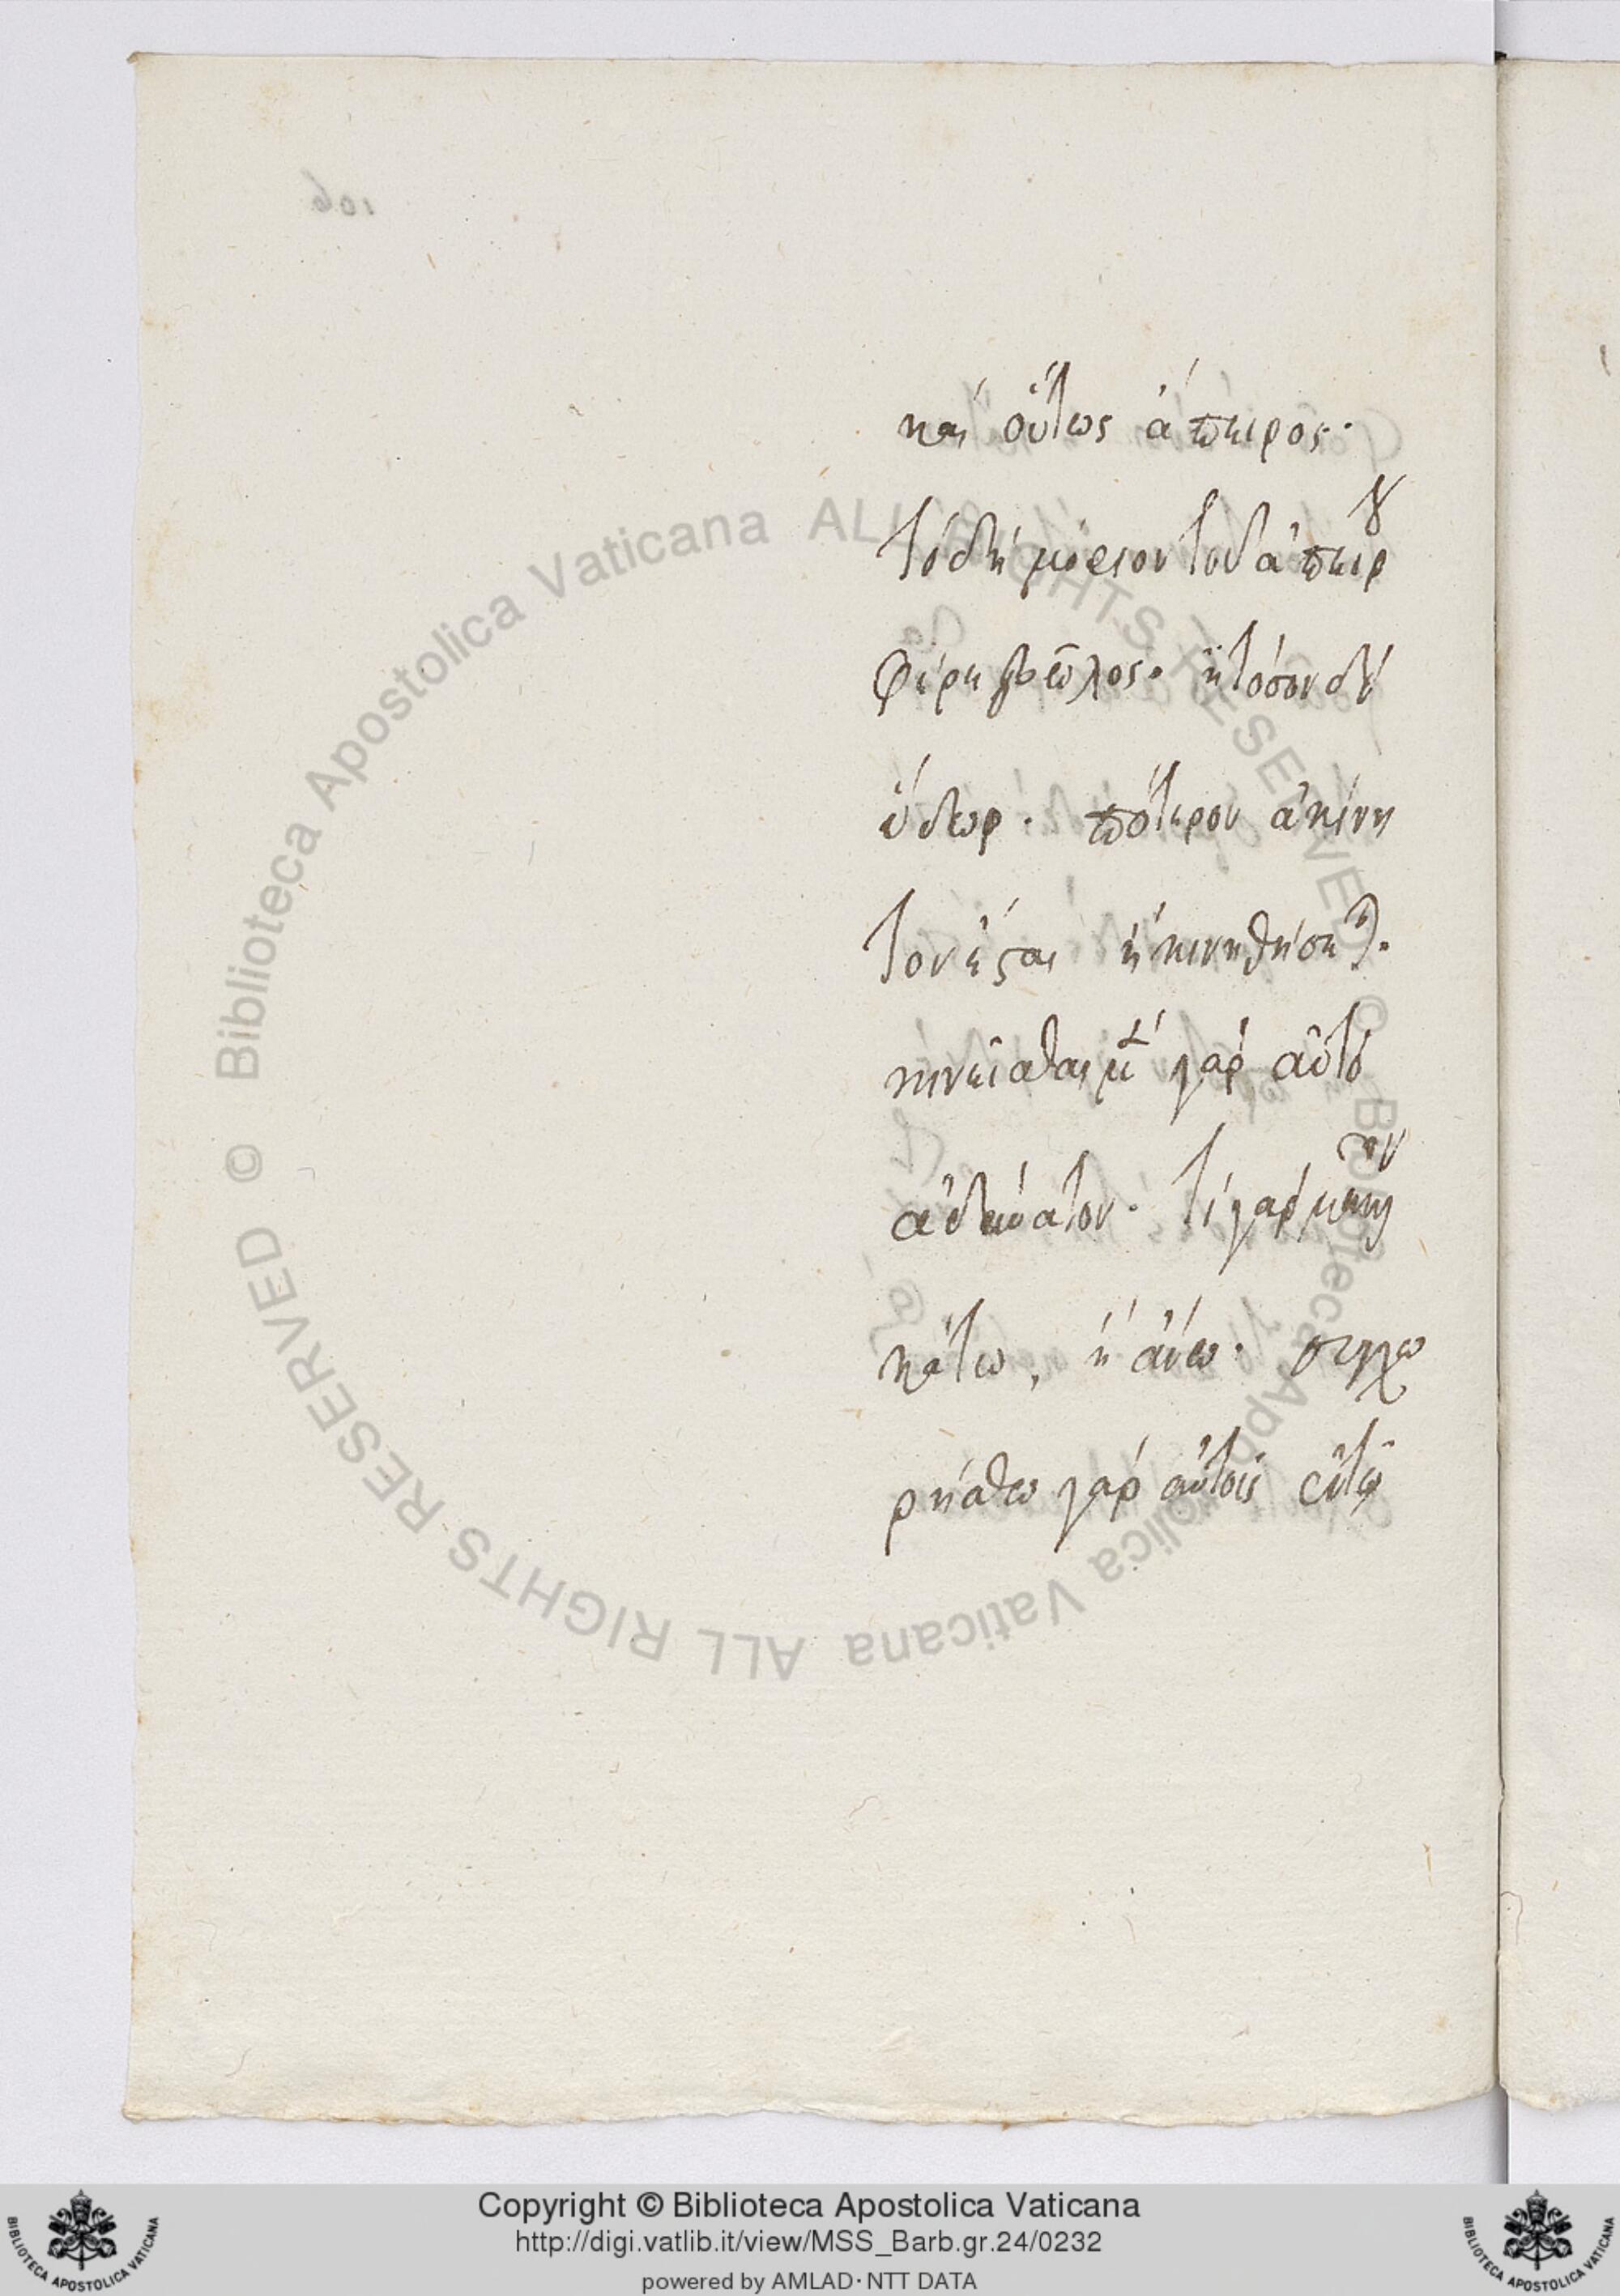 καὶ οὕτως ἄπειρος.
Τὸ δὴ μόριον τοῦ ἀπείρου
φέρε βῶλος. ἢ τόσον δὴ
ὕδωρ. πότερον ἀκίνη
τον ἔσται ἢ κινηθήσεται.
κινεῖσθαι μὲν γὰρ αὐτὸ
ἀδύνατον. τί γὰρ μᾶλλον
κάτω, ἢ ἄνω. συγχω
ρήσθω γὰρ αὐτοῖς ἐν τῷ
106
© Biblioteca Apostolica Vaticana ALL RIGHTS RESERVED © Biblioteca Apostolica Vaticana ALL RIGHTS RESERVED
Copyright © Biblioteca Apostolica Vaticana
http://digi.vatlib.it/view/MSS_Barb.gr.24/0232
powered by AMLAD·NTT DATA
BIBLIOTECA APOSTOLICA VATICANA
BIBLIOTECA APOSTOLICA VATICANA